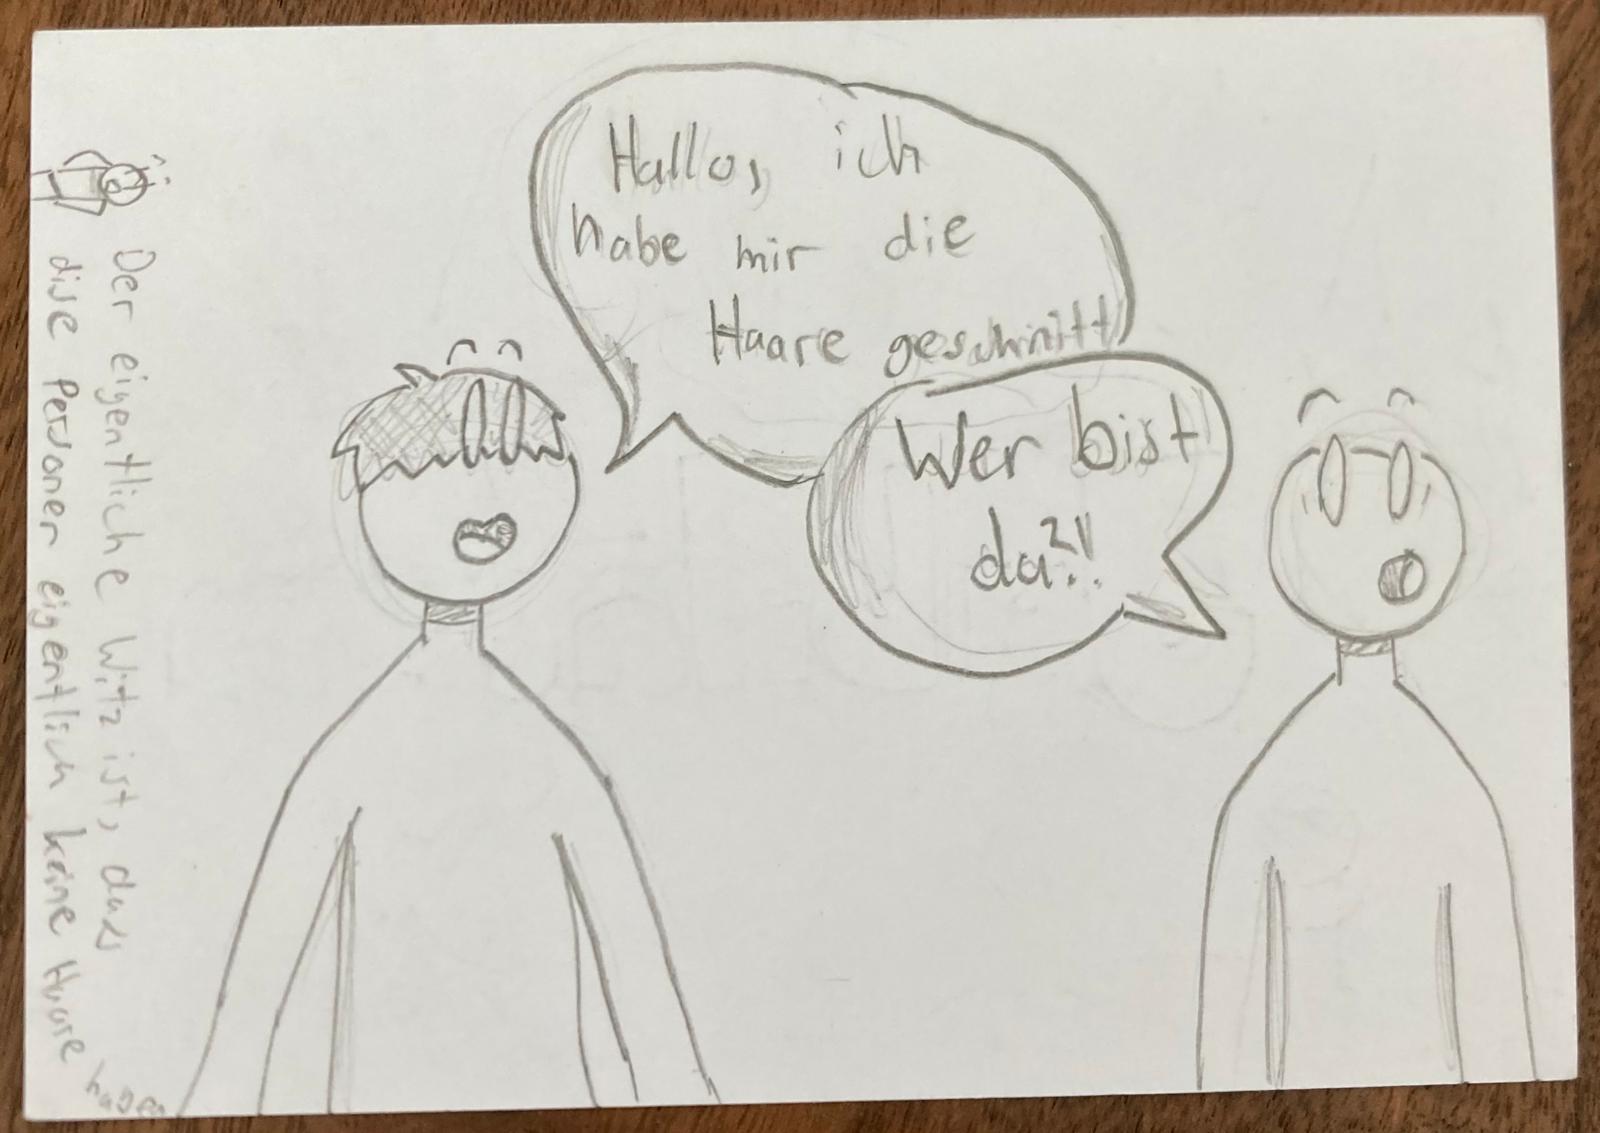 Hallo, ich
habe mir die
Haare geschnitt
Wer bist
da?!!
Der eigentliche Witz ist, dass
dise Personer eigentlich keine Haare haben